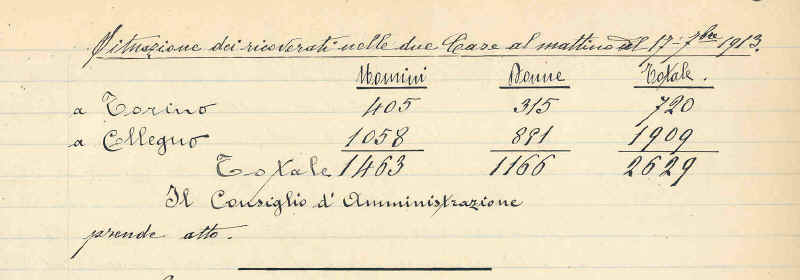 Situazione dei ricoverati nelle due Case al mattino del 17-7bre 1913.
Uomini Donne Totale.
a Torino 405 315 720
a Collegno 1058 851 1909
Totale 1463 1166 2629
Il Consiglio d'Amministrazione
prende atto.